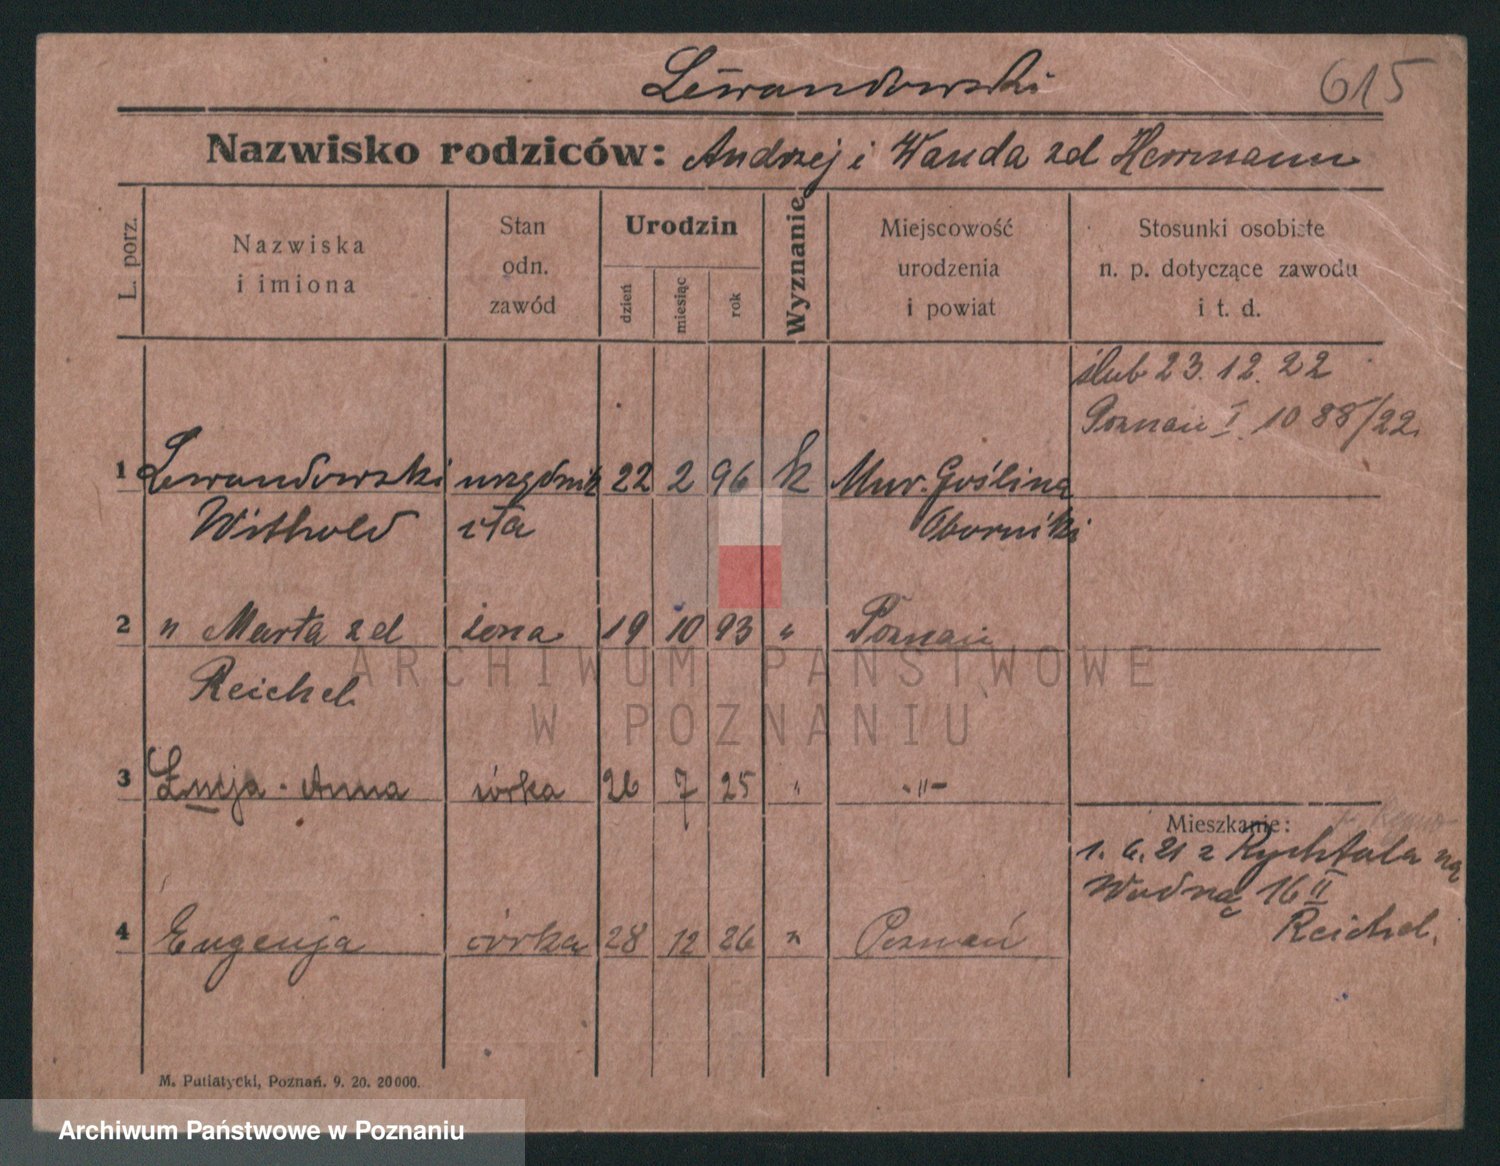 Lewandowski
615
Nazwisko rodziców: Andrzej i Wanda zd Herrmann
L. porz.
Nazwiska
i imiona
Stan
odn.
zawód
Urodzin
dzień
miesiąc
rok
Wyznanie
Miejscowość
urodzenia
i powiat
Stosunki osobiste
n. p. dotyczące zawodu
i t. d.
ślub 23.12.22
Poznań I. 1088/22.
1 Lewandowski urzędnik 22 2 96 k Mur. Goślina
Withold Oborniki
2 " Marta zd żona 19 10 93 " Poznań
Reichel
3 Łucja - Anna córka 26 7 25 " -"-
Mieszkanie:
1. 6. 21 z Rychtala na
Wodną 16 II
Reichel.
4 Eugenja córka 28 12 26 " Poznań
M. Putiatycki, Poznań. 9. 20. 20000.
ARCHIWUM PAŃSTWOWE
W POZNANIU
Archiwum Państwowe w Poznaniu